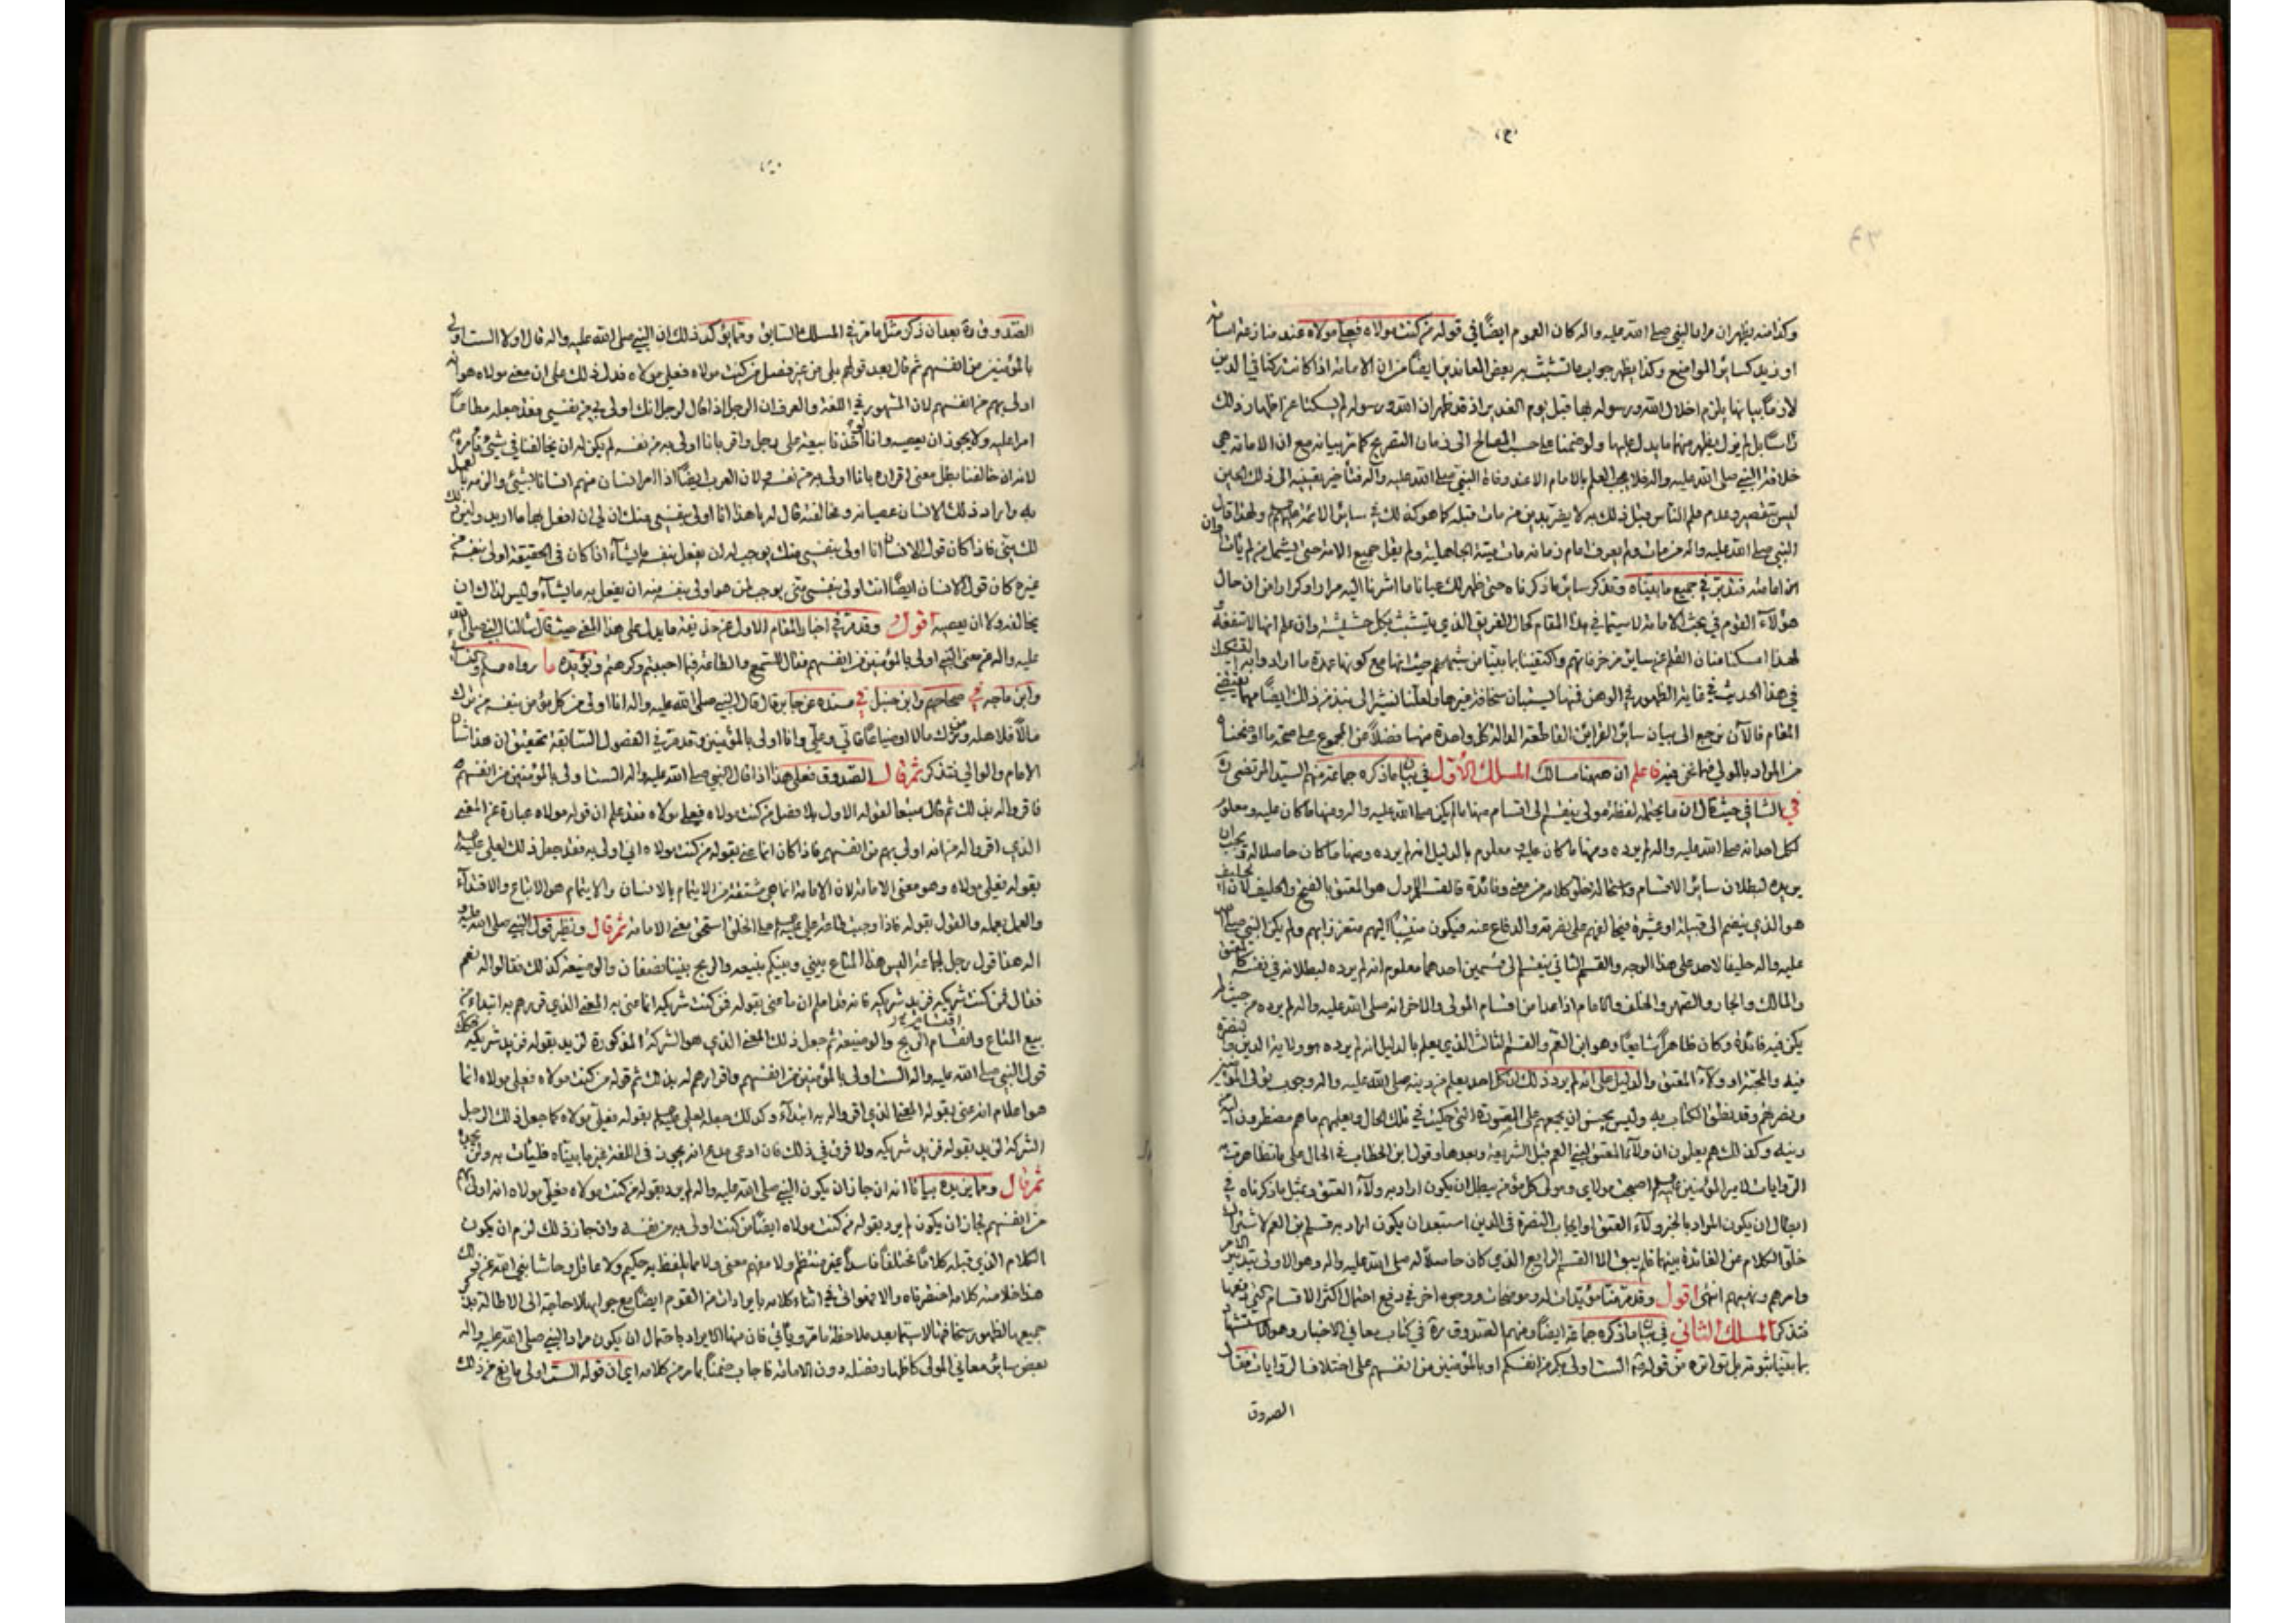 وكذا منه يظهر ان مراد النبي صلى الله عليه واله كان العموم ايضًا في قوله من كنت مولاه فعلي مولاه عند منازعة اسامة
او زيد كسائر المواضع وكذا يظهر جواب ما تشبث به بعض المعاندين ايضًا من ان الامامة اذا كانت ركنا في الدين
لازمًا بيانها يلزم اخلال الله ورسوله بها قبل يوم الغدير اذ قد ظهر ان الله ورسوله لم يسكتا عن اظهار ذلك
راسًا بل لم يزل يظهر منهما ما يدل عليها ولو ضمنا على حسب المصالح الى زمان التصريح كما مر بيانه مع ان الامامة هي
خلافة النبي صلى الله عليه واله فلا يجب العلم بالامام الا عند وفاة النبي صلى الله عليه واله فتأخير تعيينه الى ذلك الحين
ليس بتقصير وعدم علم الناس قبل ذلك به لا يضر بدين من مات قبله كما هو كذلك في سائر الائمة عليهم ولهذا قال
النبي صلى الله عليه واله من مات ولم يعرف امام زمانه مات ميتة الجاهلية ولم يقل جميع الائمة حتى يشمل من لم يأت وان
امامته فتدبر في جميع ما بيناه وتذكر سائر ما ذكرناه حتى يظهر لك عيانا ما اشرنا اليه مرارا وكرارا من ان حال
هؤلاء القوم في بحث الامامة لا سيما في هذا المقام كحال الغريق الذي يتشبث بكل حشيش وان علم انها لا تنفعه
لهذا امسكنا عنان القلم عن سائر مزخرفاتهم واكتفينا بما بينا من شبههم حيث انها مع كونها عمدة ما ارادوا به
في هذا الحديث في غاية الظهور في الوهن فبها يستبان سخافة غيرها ولعلنا نشير الى نبذ من ذلك ايضًا مهما يقتضي
المقام فالآن نرجع الى بيان سائر القرائن القاطعة الدالة كل واحدة منها فضلاً عن المجموع على صحة ما اوضحناه
من المراد بالمولى فيما نحن فيه فاعلم ان ههنا مسالك المسلك الأول في بيان ما ذكره جماعة منهم السيد المرتضى ره
في الشافي حيث قال ان ما يحتمله لفظة مولى ينقسم الى اقسام منها ما لم يكن صلى الله عليه واله ومنها ما كان عليه ومعلوم
لكل احد انه صلى الله عليه واله لم يرده ومنها ما كان عليه ومعلوم بالدليل انه لم يرده ومنها ما كان حاصلا له ويجب ان
يريده لبطلان سائر الاقسام واستحالة خلو كلامه من معنى وفائدة فالقسم الاول هو المعتق بالفتح والحليف لان الحليف
هو الذي ينضم الى قبيلة او عشيرة فيحالفهم على نصرته والدفاع عنه فيكون منتسبًا اليهم متعززا بهم ولم يكن النبي صلى الله
عليه واله حليفا لاحد على هذا الوجه والقسم الثاني ينقسم الى قسمين احدهما معلوم انه لم يرده لبطلانه في نفسه كالمعتق
والمالك والجار والصهر والخلف والامام اذا عدا من اقسام المولى والاخر انه صلى الله عليه واله لم يرده من حيث لم
يكن فيه فائدة وكان ظاهرًا شايعًا وهو ابن العم والقسم الثالث الذي يعلم بالدليل انه لم يرده هو ولاية الدين والنصرة
فيه والمحبة او ولاء المعتق والدليل على انه لم يرد ذلك ان كل احد يعلم من دينه صلى الله عليه واله وجوب تولي المؤمنين
ونصرتهم وقد نطق الكتاب به وليس يحسن ان يجمعهم على الصورة التي حكيت في تلك الحال ويعلمهم ما هم مضطرون اليه
دينه وكذلك هم يعلمون ان ولآء المعتق لبني العم قبل الشريعة وبعدها وقول ابن الخطاب في الحال على ما تظاهرت به
الروايات لامير المؤمنين عليه السلام اصبحت مولاي ومولى كل مؤمن يبطل ان يكون اراد به ولآء العتق وبمثل ما ذكرناه في
ابطال ان يكون المراد بالخبر ولآء العتق او ايجاب النصرة في الدين استبعد ان يكون اراد به قسم ابن العم لاشتراك
خلو الكلام عن الفائدة بينهما فلم يبق الا القسم الرابع الذي كان حاصلا له صلى الله عليه واله وهو الاولى بتدبير الامر
وامرهم ونهيهم انتهى اقول وقد مر منا مؤيدات له وموضحات ووجوه اخر في دفع احتمال اكثر الاقسام
فتذكر المسلك الثاني في بيان ما ذكره جماعة ايضًا ومنهم الصدوق ره في كتاب معاني الاخبار وهو الاستشهاد
بما بينا ثبوته بل تواتره من قوله الست اولى بكم من انفسكم او بالمؤمنين من انفسهم على اختلاف الروايات فقال
الصدوق
الصدوق ره بعد ان ذكر مثل ما مر في المسلك السابق ومما يؤكد ذلك ان النبي صلى الله عليه واله قال اولا الست اولى
بالمؤمنين من انفسهم ثم قال بعد قولهم بلى من غير فصل من كنت مولاه فعلي مولاه فدل ذلك على ان معنى مولاه هو انه
اولى بهم من انفسهم لان المشهور في اللغة والعرف ان الرجل اذا قال لرجل انك اولى بي من نفسي فقد جعله مطاعًا
امرا عليه ولا يجوز ان يعصيه وانا لو أخذنا بيعة على رجل واقر بانا اولى به من نفسه لم يكن له ان يخالفنا في شيء نأمره به
لانه ان خالفنا بطل معنى اقراره بانا اولى به من نفسه ولان العرب ايضًا اذا امر انسان منهم انسانا بشيء والزمه بالعمل
به واراد ذلك الانسان عصيانه ومخالفته قال له يا هذا انا اولى بنفسي منك ان لي ان افعل بها ما اريد وليس ذلك
لك مني فاذا كان قول الانسان انا اولى بنفسي منك يوجب له ان يفعل بنفسه ما يشآء اذا كان في الحقيقة اولى بنفسه من
غيره كان قول الانسان ايضًا انت اولى بنفسي مني يوجب لمن هو اولى بنفسه منه ان يفعل به ما يشآء وليس لذلك ان
يخالفه ولا ان يعصيه اقول وقد مر في اخبار المقام الاول عن حذيفة ما يدل على هذا المعنى حيث قال سألنا النبي صلى الله
عليه واله عن معنى النبي اولى بالمؤمنين من انفسهم فقال السمع والطاعة فيما احببتم وكرهتم ويؤيده ما رواه مسلم
وابن ماجه في صحاحهم وابن حنبل في مسنده عن جابر قال قال النبي صلى الله عليه واله انا اولى من كل مؤمن بنفسه من ترك
مالاً فلاهله ومن ترك مالا او ضياعًا فالي وعلي وانا اولى بالمؤمنين وقد مر في الفصول السابقة تحقيق ان هذا شأن
الامام والوالي فتذكر ثم قال الصدوق فعلى هذا اذا قال النبي صلى الله عليه واله الست اولى بالمؤمنين من انفسهم
فاقروا له بذلك ثم قال متبعا لقوله الاول بلا فصل من كنت مولاه فعلي مولاه فقد علم ان قوله مولاه عبارة عن المعنى
الذي اقروا له من انه اولى بهم من انفسهم فاذا كان انما عنى بقوله من كنت مولاه اني اولى به فقد جعل ذلك لعلي عليه
بقوله فعلي مولاه وهو معنى الامامة لان الامامة انما هي مشتقة من الايتمام بالانسان والايتمام هو الاتباع والاقتدآء
والعمل بعمله والقول بقوله فاذا وجبت طاعة علي عليه السلام على الخلق استحق معنى الامامة ثم قال ونظير قول النبي صلى الله عليه
اله هذا قول رجل لجماعة اليس هذا المتاع بيني وبينكم نبيعه والربح بيننا نصفان والوضيعة كذلك فقالوا له نعم
فقال فمن كنت شريكه فزيد شريكه فانه قد اعلم ان ما عنى بقوله فمن كنت شريكه انما عنى به المعنى الذي قررهم به ابتداء من
بيع المتاع واقتسام الربح والوضيعة ثم جعل ذلك المعنى الذي هو الشركة المذكورة لزيد بقوله فزيد شريكه فكذلك
قول النبي صلى الله عليه واله الست اولى بالمؤمنين من انفسهم واقرارهم له بذلك ثم قوله من كنت مولاه فعلي مولاه انما
هو اعلام انه عنى بقوله المعنى الذي اقروا له به ابتدآء وكذلك جعله لعلي عليه السلام بقوله فعلي مولاه كما جعل ذلك الرجل
الشركة لزيد بقوله فزيد شريكه ولا فرق في ذلك فان ادعى مدع انه يجوز في اللغة غير ما بيناه فليأت به ولن يجده
ثم قال ومما يزيده بيانًا انه ان جاز ان يكون النبي صلى الله عليه واله لم يرد بقوله من كنت مولاه فعلي مولاه انه اولى بهم
من انفسهم لجاز ان يكون لم يرد بقوله من كنت مولاه ايضًا من كنت اولى به من نفسه وان جاز ذلك لزم ان يكون
الكلام الذي قبله كلامًا مختلفًا فاسدًا غير منتظم ولا مفهم معنى ولا مما يلفظ به حكيم ولا عاقل وحاشا نبي الله عن ذلك
هذا خلاصة كلامه اختصرناه والا فهو اتى في اثناء كلامه بايرادات من القوم ايضًا مع جوابها لا حاجة الى الاطالة بذكر
جميعها لظهور سخافتها لا سيما بعد ملاحظة ما مر ويأتي فان منها الايراد باحتمال ان يكون مراد النبي صلى الله عليه واله
بعض سائر معاني المولى كاظهار فضله دون الامامة فاجاب ضمنًا بما مر من كلامه اي ان قوله الست اولى مانع من ذلك